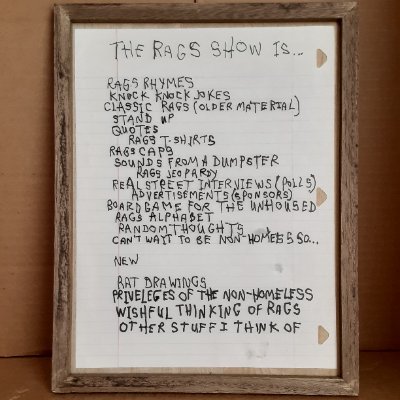 THE RAGS SHOW IS...
RAGS RHYMES
KNOCK KNOCK JOKES
CLASSIC RAGS (OLDER MATERIAL)
STAND UP
QUOTES
RAGS T-SHIRTS
RAGS CAPS
SOUNDS FROM A DUMPSTER
RAGS JEOPARDY
REAL STREET INTERVIEWS (POLLS)
ADVERTISEMENTS (SPONSORS)
BOARDGAME FOR THE UNHOUSED
RAGS ALPHABET
RANDOM THOUGHTS
CAN'T WAIT TO BE NON-HOMELESS SO...
NEW
RAT DRAWINGS
PRIVELEGES OF THE NON-HOMELESS
WISHFUL THINKING OF RAGS
OTHER STUFF I THINK OF